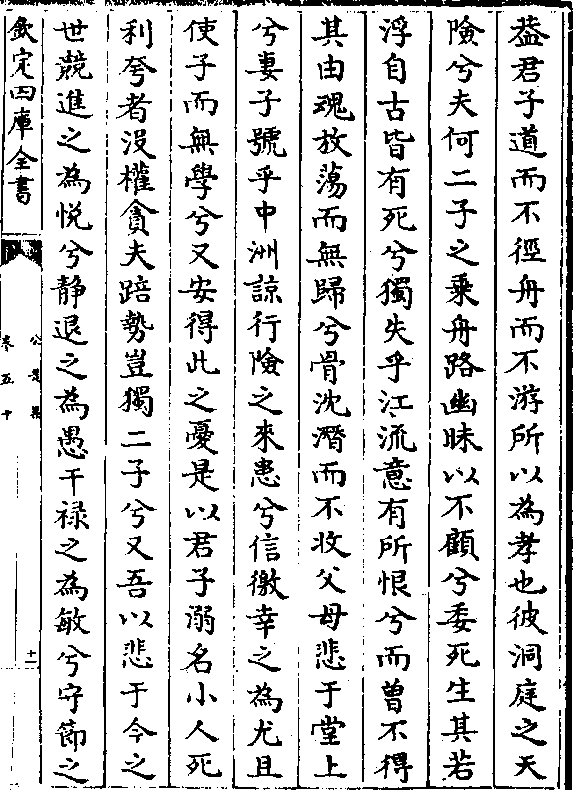 葢君子道而不徑舟而不游所以為孝也彼洞庭之天
險兮夫何二子之乗舟路幽昧以不顧兮委死生其若
浮自古皆有死兮獨失乎江流意有所恨兮而曽不得
其由魂放蕩而無歸兮骨沈潛而不收父母悲于堂上
兮妻子號乎中洲諒行險之來患兮信徼幸之為尤且
使子而無學兮又安得此之憂是以君子溺名小人死
利夸者沒權貪夫踣勢豈獨二子兮又吾以悲于今之
世競進之為悦兮静退之為愚干禄之為敏兮守節之
欽定四庫全書
公是集
卷五十
十二